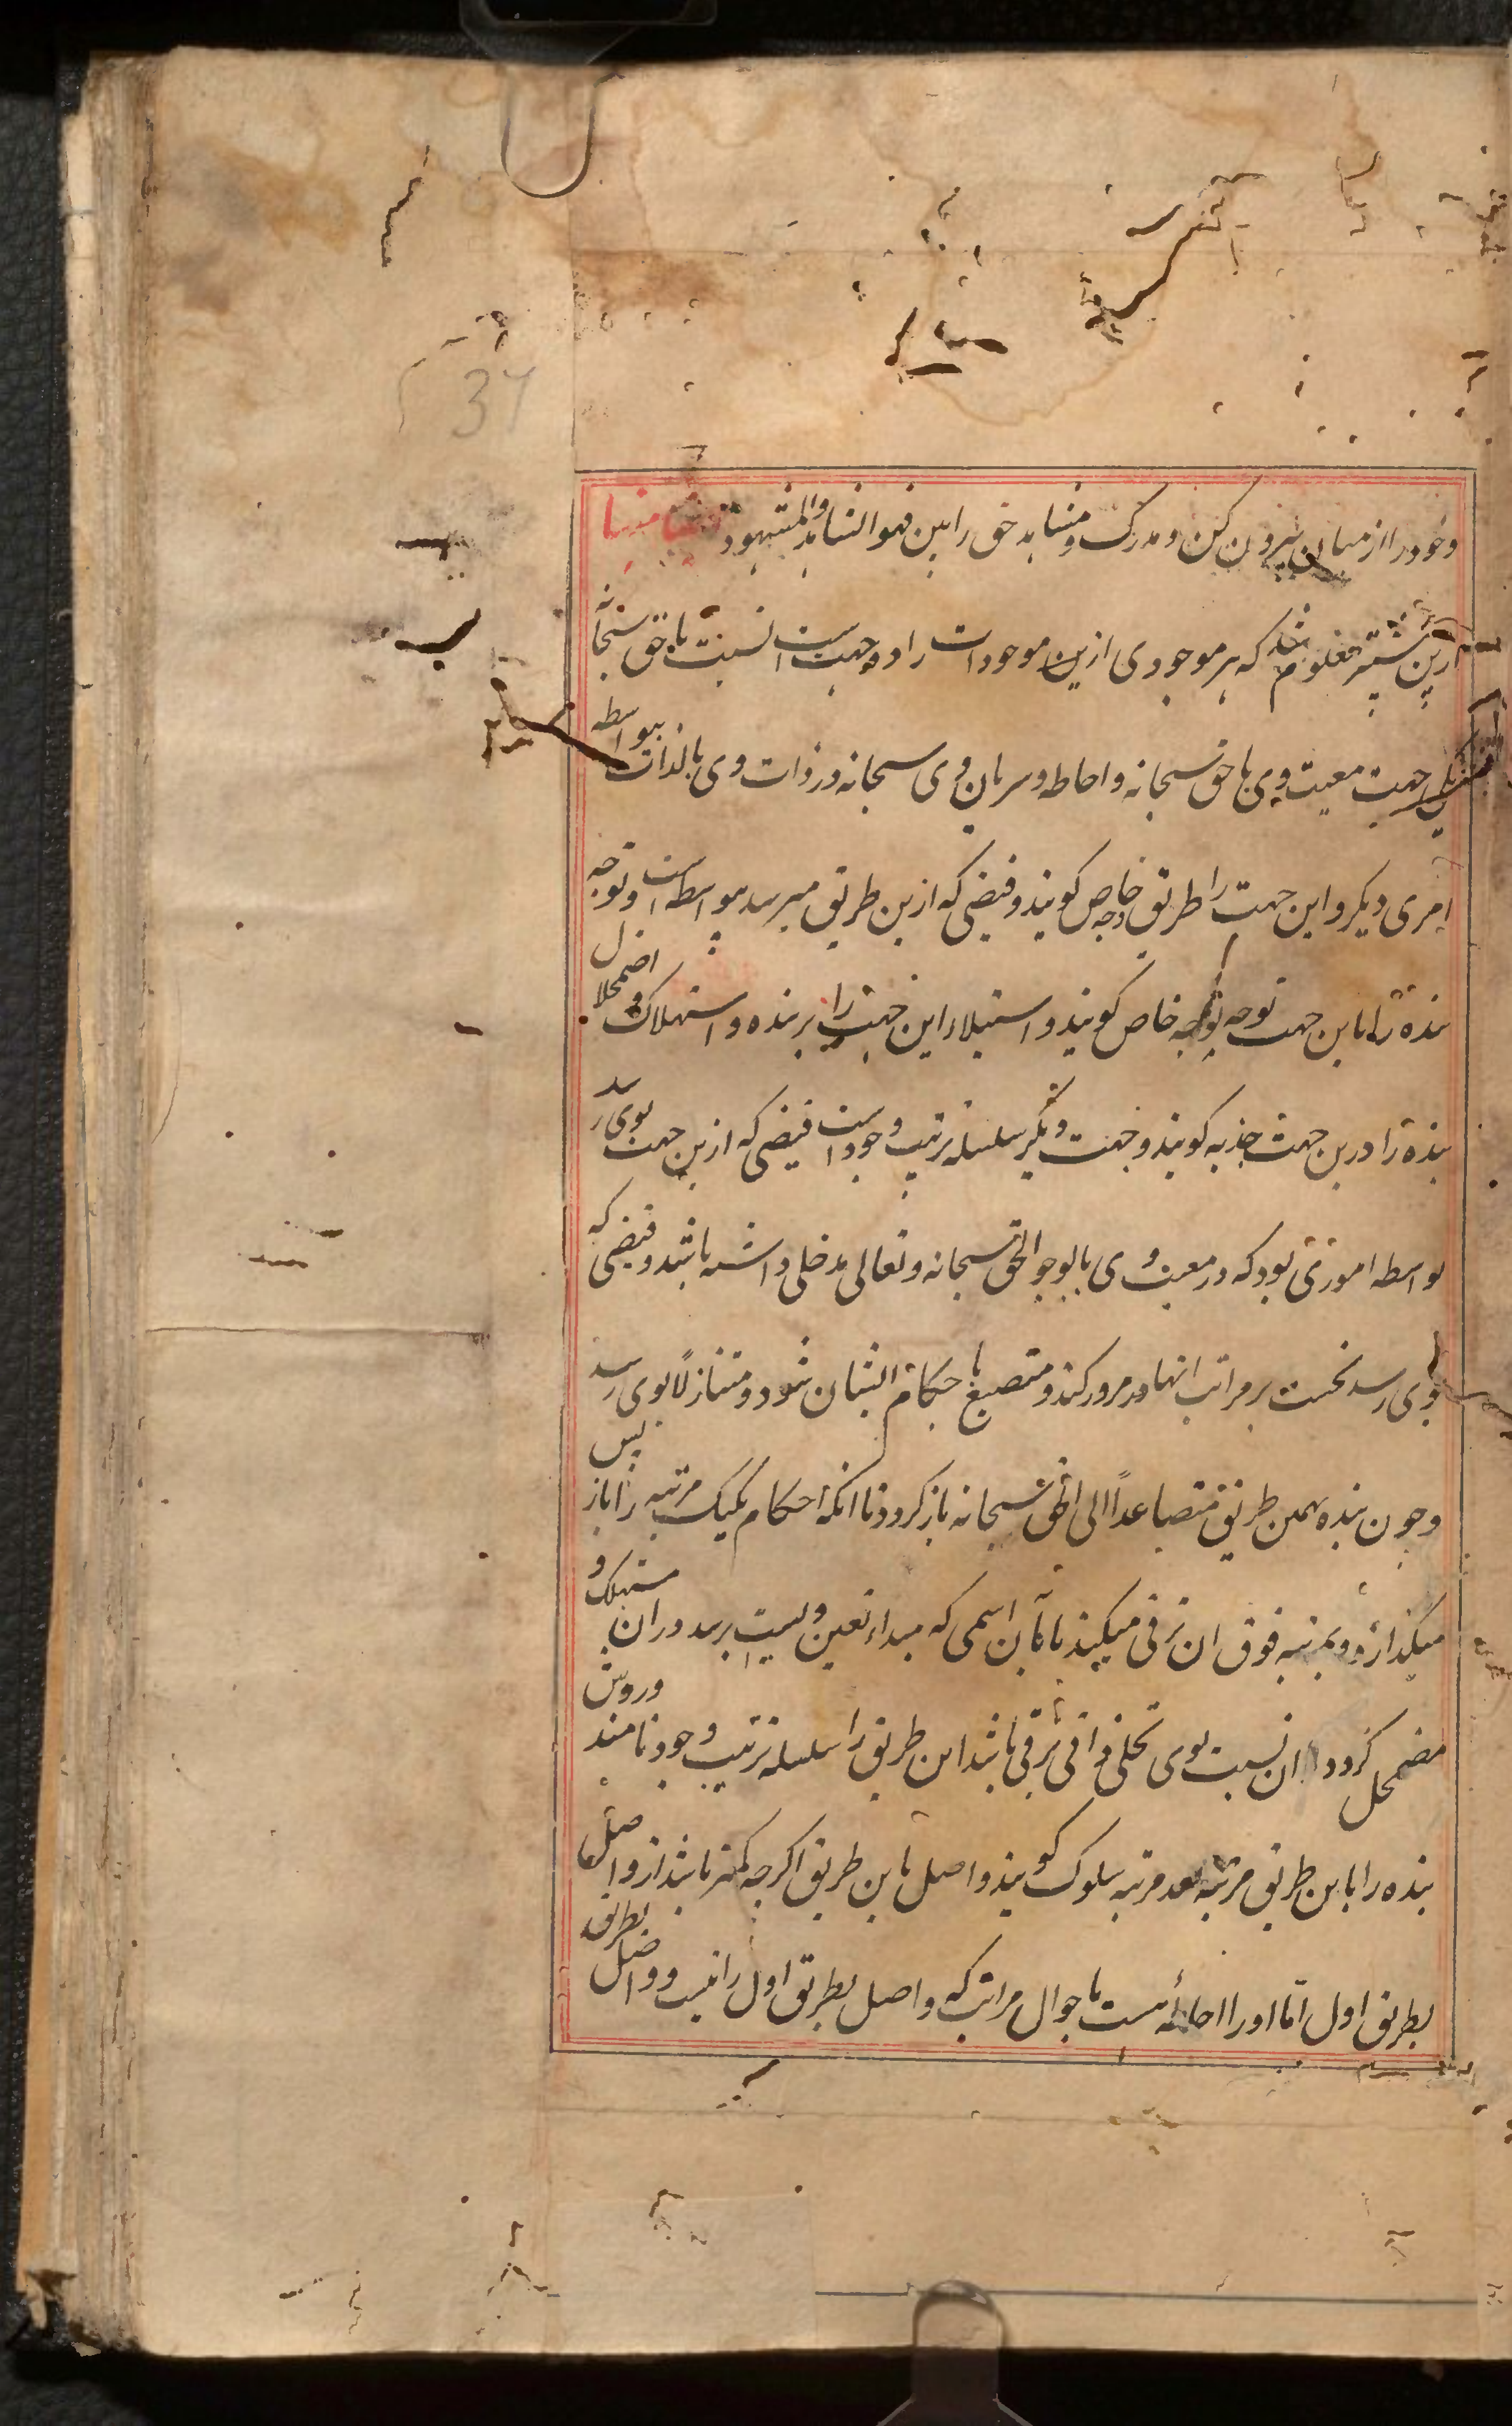 37
وخود را از میان بیرون کن و مدرک و مشاهد حق را بین فهو الشاهد والمشهود
ازین پیشتر معلوم شد که هر موجودی ازین موجودات را دو جهت است نسبت با حق سبحانه
یکی جهت معیت وی با حق سبحانه و احاطه و سریان وی سبحانه در ذات وی بالذات بیواسطه
امری دیکر و این جهت را طریق وجه خاص کویند و فیضی که ازین طریق میرسد بیواسطه است و توجه
بنده را باین جهت توجه بوجه خاص کویند و استیلاء این جهت را بر بنده و استهلاک و اضمحلال
بنده را درین جهت جذبه کویند و جهت دیکر سلسله ترتیب وجود است فیضی که ازین جهت بوی رسد
بواسطه اموری بود که در معیت وی بالوجود الحق سبحانه و تعالی مدخلی داشته باشد و فیضی که
بوی رسد نخست بر مراتب انها مرور کند و متصبغ باحکام ایشان شود و متنازلاً بوی رسد
و چون بنده بهمین طریق متصاعداً الی الحق سبحانه باز کردد تا انکه احکام یکیک مرتبه را باز پس
میکذارد و بمرتبه فوق ان ترقی میکند تا بآن اسمی که مبداء تعین ویست برسد و در ان مستهلک و
مضمحل کردد ان نسبت بوی تجلی ذاتی برقی باشد این طریق را سلسله ترتیب وجود نامند و روش
بنده را باین طریق مرتبه بعد مرتبه سلوک کویند و اصل باین طریق اکرچه کمتر باشد از واصل
بطریق اول اما او را احاطه هست باحوال مراتب که واصل بطریق اول را نیست و واصل بطریق